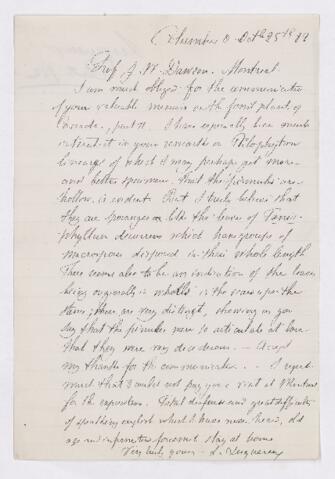 Columbus O Octb 25th 82
Prof J. W. Dawson. Montreal
I am much obliged for the communication
of your valuable memoir on the fossil plants of
Canada, part II. I have especially been much
interested in your remarks on Ptilophyton
of which I may perhaps get more
and better specimens. That the pinnules are
hollow, is evident. But I truly believe that
they are sporanges or like the leaves of Taenio-
phyllum decurrens which have groups of
macrospores disposed in their whole length
There seems also to be an indication of the leaves
being originally in whorls in the scars upon the
stems; these are very distinct, showing as you
say that the pinnules were so articulate at base
that they were very deciduous. — Accept
my thanks for the communication. — I regret
much that I could not pay you a visit at Montreal
for the exposition. Total deafness and great difficulty
of speaking english which I have never heard, old
age and infirmities forces me to stay at home
Very truly yours — L. Lesquereux